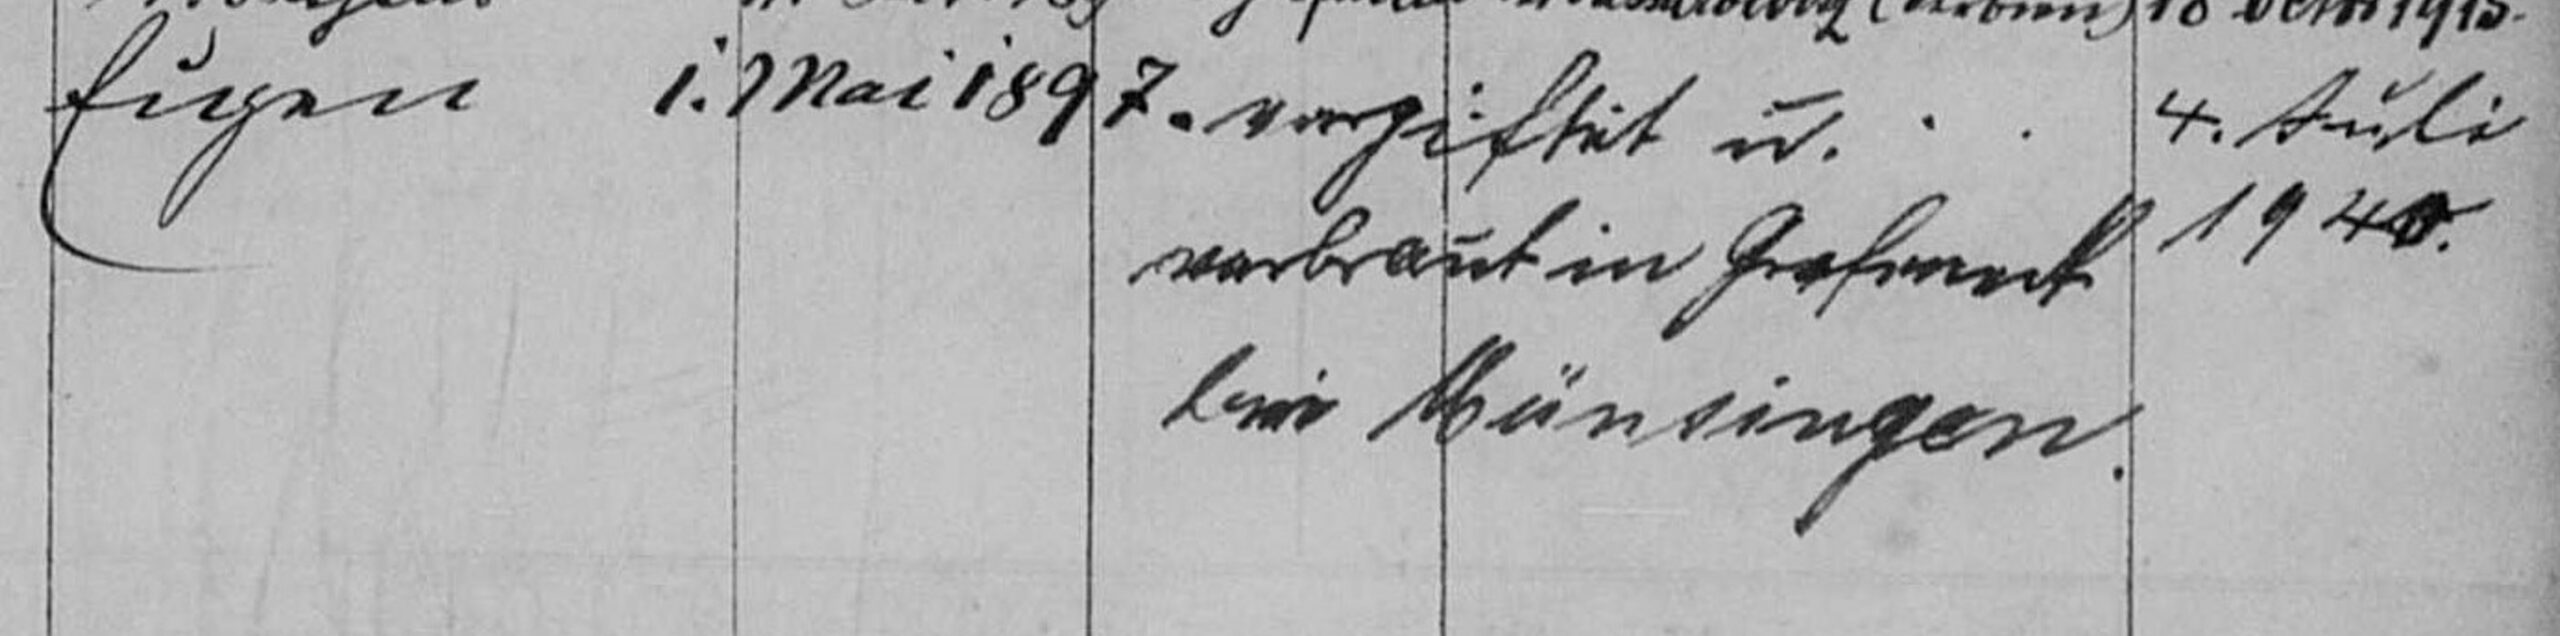 18 Octbr 1915.
Eugen 1. Mai 1897. vergiftet u. 4. Juli
verbrant in Grafeneck 1940.
bei Münsingen.